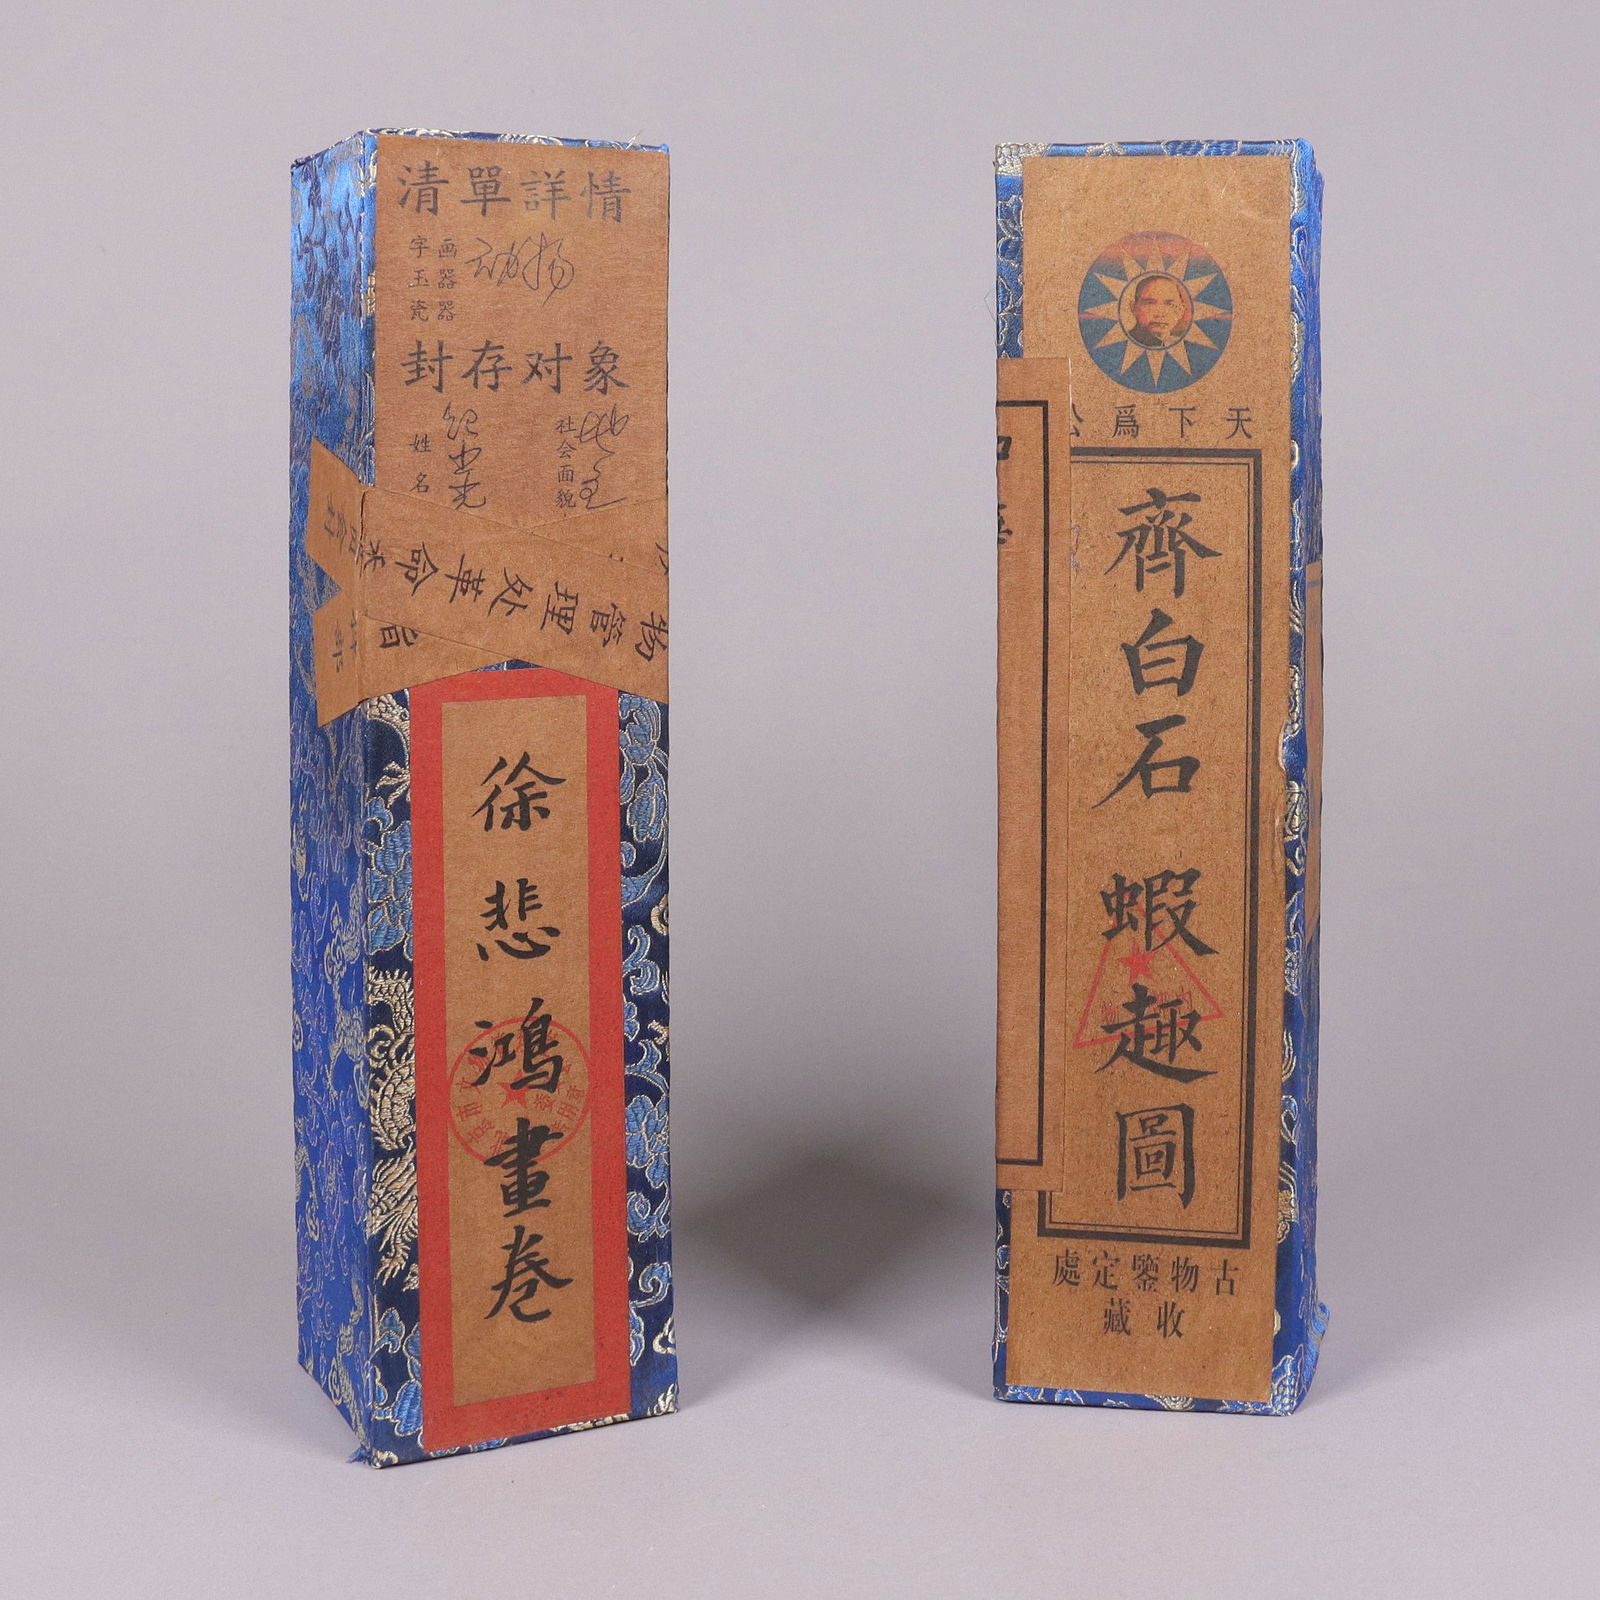 清單詳情
字画
玉器
瓷器
动物
封存对象
姓名
社会面貌
物管理处革命
省
徐悲鴻畫卷
天下爲公
齊白石 蝦趣圖
古物鑒定處
收藏